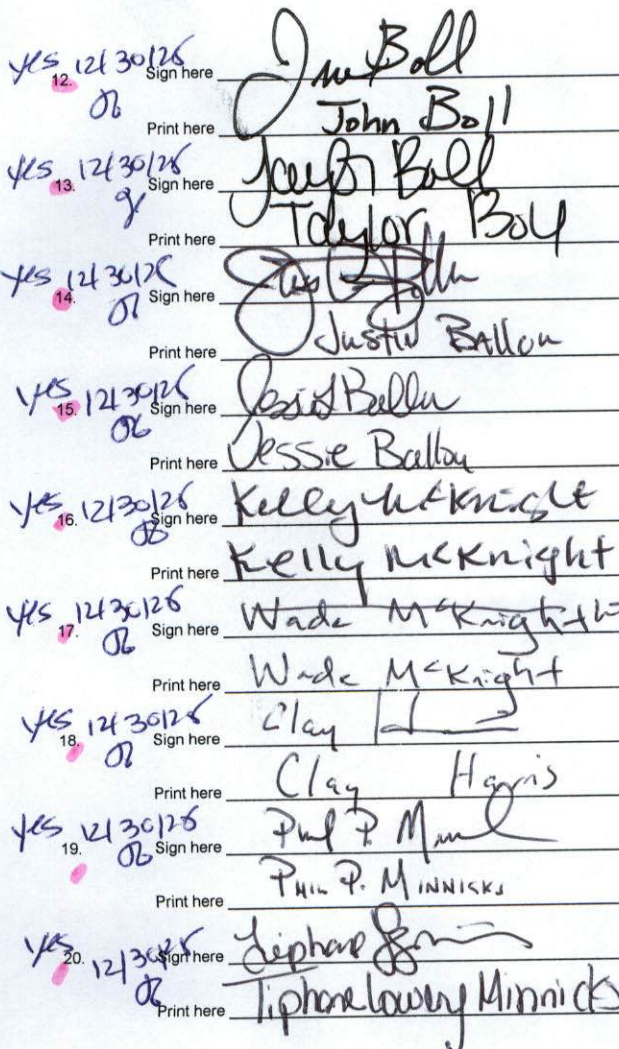 yes 12/30/25
12. Sign here Boll
Print here John Boll
yes 12/30/25
13. Sign here Taylor Boll
Print here Taylor Boll
yes 12/30/25
14. Sign here
Print here Justin Ballou
yes 12/30/25
15. Sign here Jessie Ballou
Print here Jessie Ballou
yes 12/30/25
16. Sign here Kelly McKnight
Print here Kelly McKnight
yes 12/30/25
17. Sign here Wade McKnight
Print here Wade McKnight
yes 12/30/25
18. Sign here Clay
Print here Clay Harris
yes 12/30/25
19. Sign here Phil P.
Print here PHIL P. MINNICKS
yes 12/30/25
20. Sign here Tiphane
Print here Tiphane Lowery Minnicks